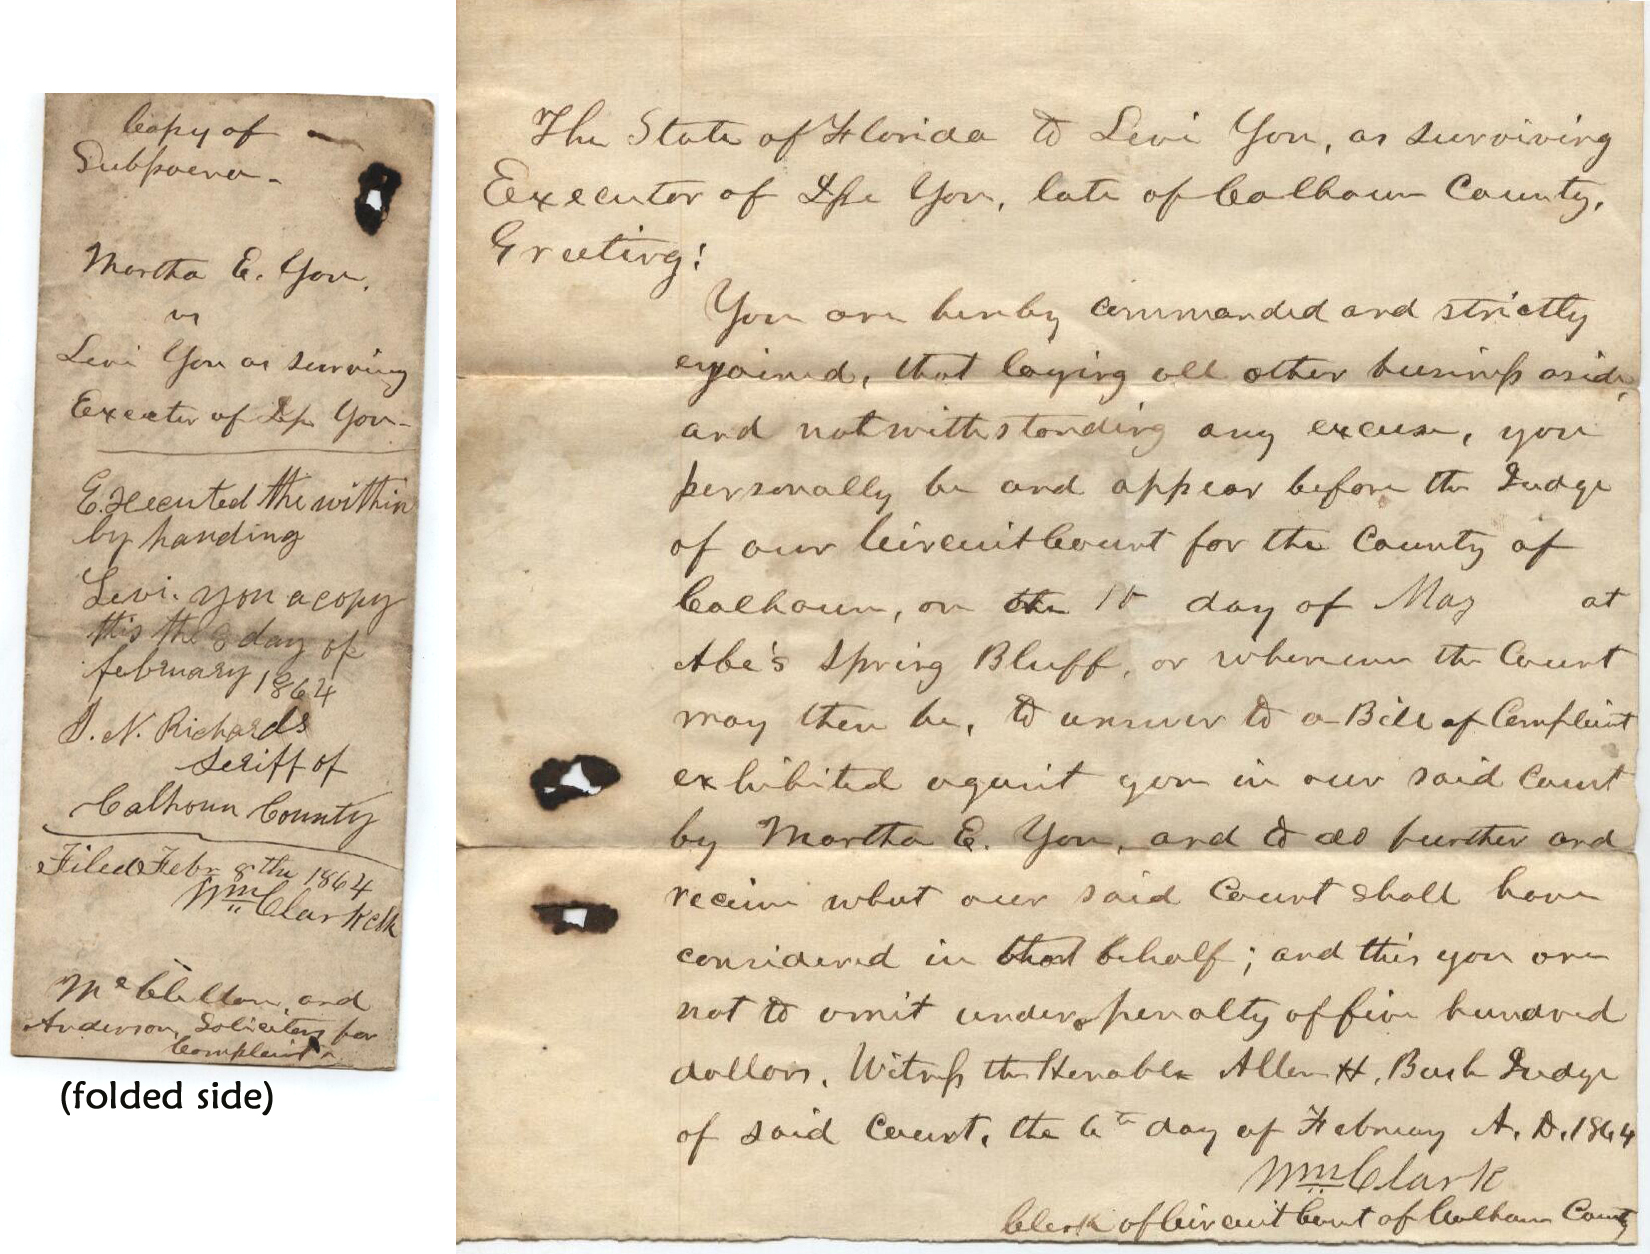 Copy of
Subpoena -
Martha E. You,
vs
Levi You as surviving
Executor of You -
Executed the within
by handing
Levi. you a copy
this the 8 day of
february 1864
J. N. Richards
Seriff of
Calhoun County
Filed Febr 8th 1864
Wm Clark clk
McClellan and
Anderson, Solicitors for
Complaint
(folded side)
The State of Florida to Levi You, as surviving
Executor of You, late of Calhoun County,
Greeting!
You are hereby commanded and strictly
enjoined, that laying all other business aside,
and notwithstanding any excuse, you
personally be and appear before the Judge
of our Circuit Court for the County of
Calhoun, on the day of May at
Abe's Spring Bluff, or wherever the Court
may then be, to answer to a Bill of Complaint
exhibited against you in our said Court
by Martha E. You, and to do further and
receive what our said Court shall have
considered in that behalf; and this you are
not to omit under penalty of five hundred
dollars. Witness the Honable Allen H. Bush Judge
of said Court, the 6th day of February A. D. 1864
Wm Clark
Clerk of Circuit Court of Calhoun County